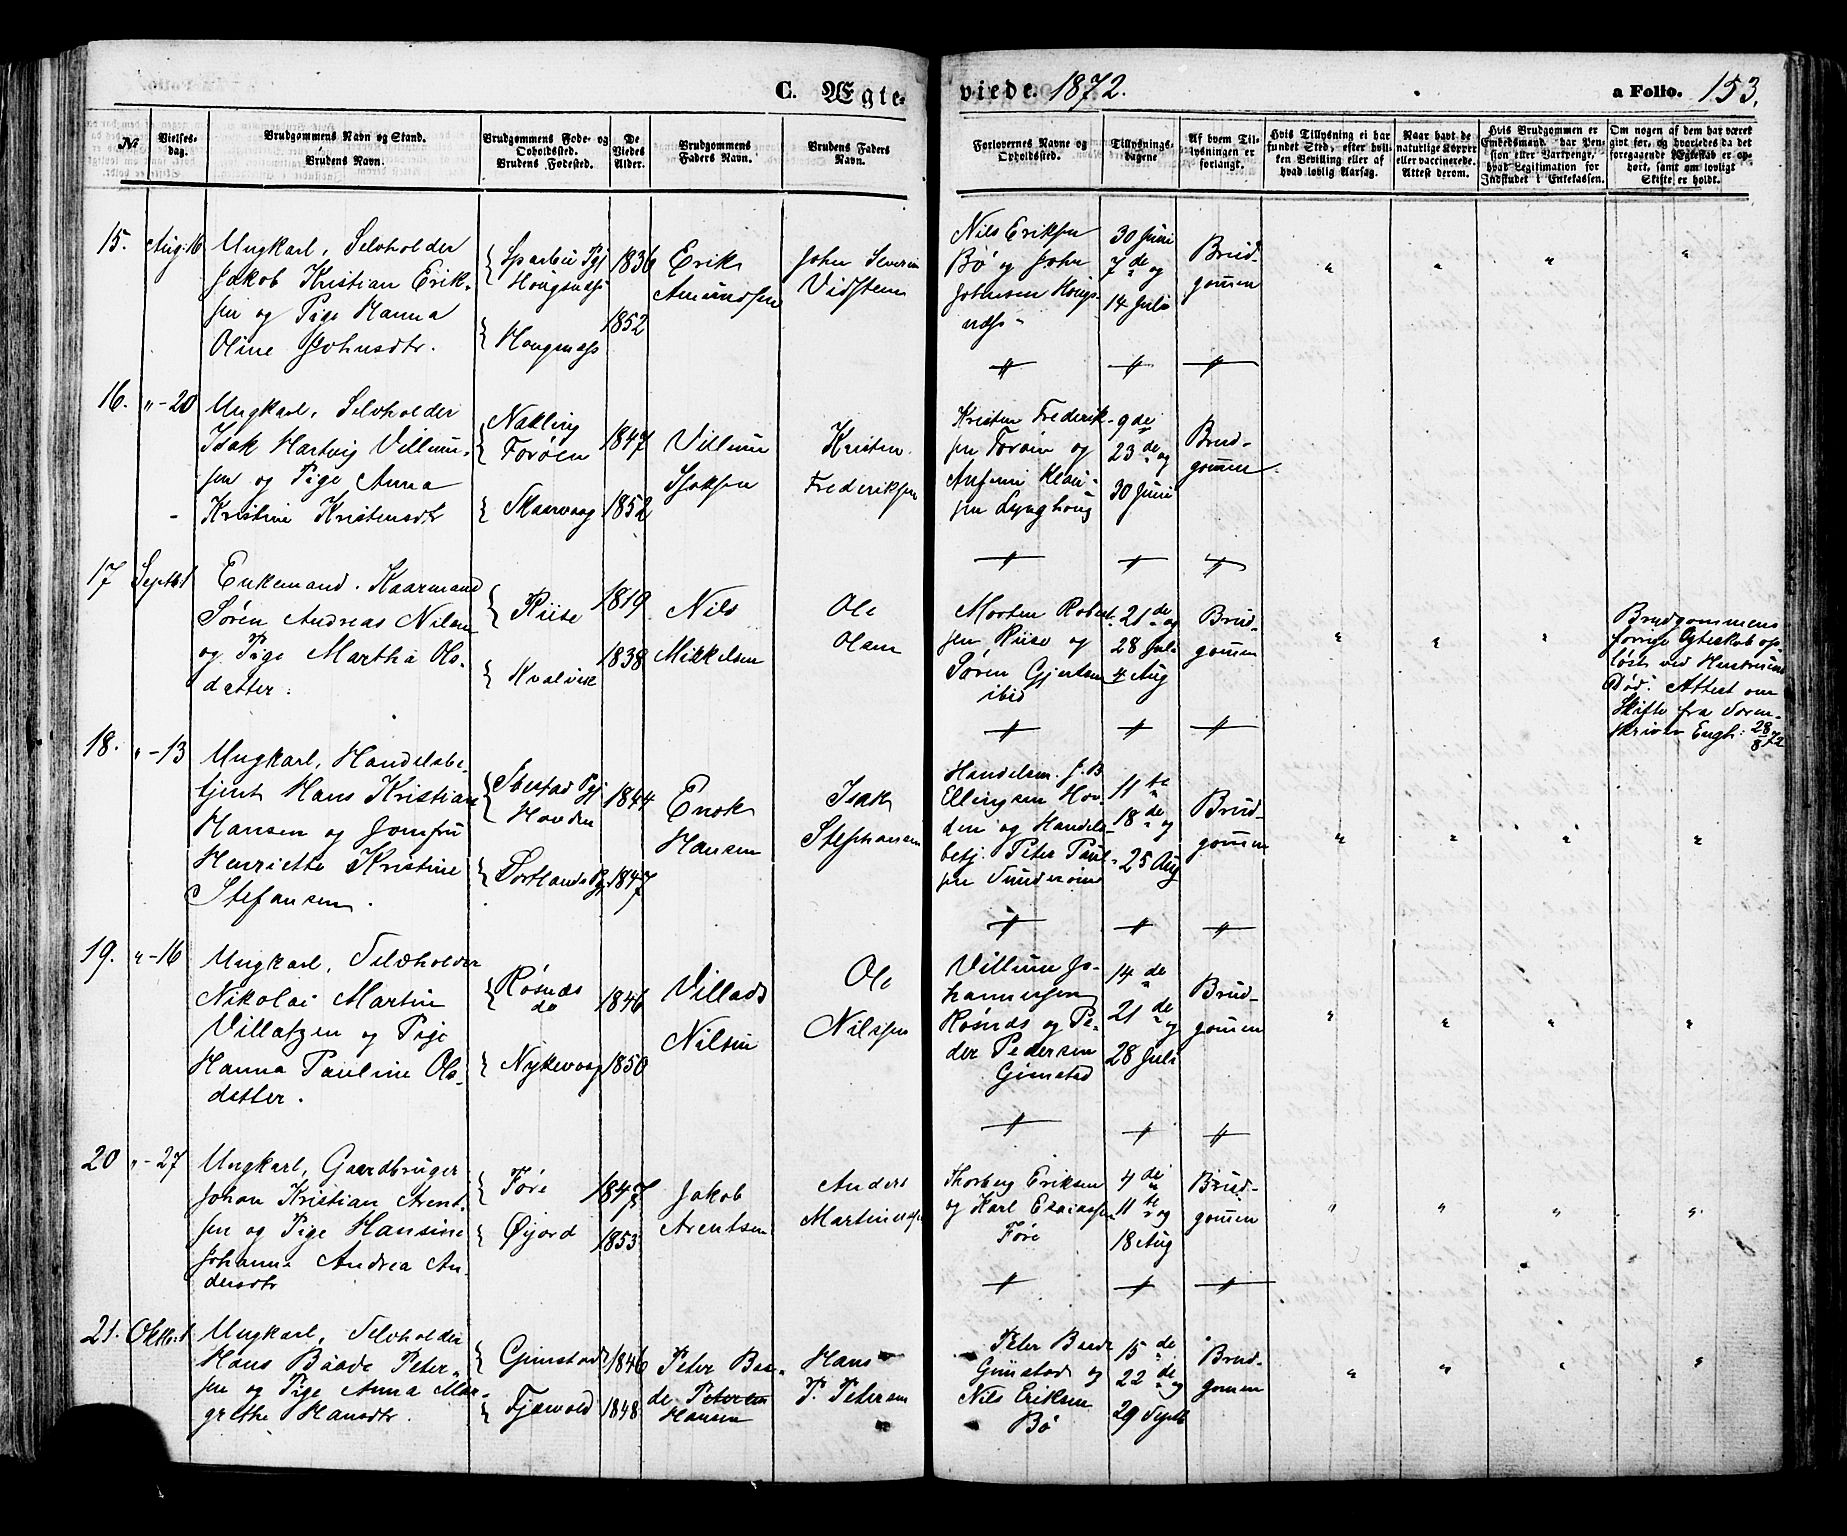 C. Ægteviede. 1872. a Folio. 153.
№
Vielses-
dag.
Brudgommens Navn og Stand.
Brudens Navn.
Brudgommens Føde- og
Opholdssted.
Brudens Fødested.
De
Viedes
Alder.
Brudgommens
Faders Navn.
Brudens Faders
Navn.
Forlovernes Navne og
Opholdssted.
Tillysnings-
dagene
Af hvem Til-
lysningen er
forlangt.
Hvis Tillysning ei har
fundet Sted, efter hvil-
ken Bevilling eller af
hvad lovlig Aarsag.
Naar havt de
naturlige Kopper
eller vaccinerede.
Attest derom.
Hvis Brudgommen er
Embedsmand, har Pen-
sion eller Vartpenge,
hvad Legitimation for
Indskudet i Enkekassen.
Om nogen af dem har været
gift før, og hvorledes da det
foregaaende Ægteskab er op-
hørt, samt om lovligt
Skifte er holdt.
15.
Aug. 16
Ungkarl, Selvholder
Jakob Kristian Erik-
sen og Pige Hanna
Oline Johnsdtr.
Sparbu Pgj
Hougsnæs
Hougsnæs
1836
1852
Erik
Amundsen
John Severin
Vidsteen
Nils Eriksen
Bø og John
Johnsen Hougs-
næs
30 Juni
7de og
14 Juli
Brud-
gommen
16.
" - 20
Ungkarl, Selvholder
Isak Hartvig Villum-
sen og Pige Anna
Kristine Kristensdtr
Nakling
Forøen
Skaarvaag
1847
1852
Villum
Isaksen
Kristen
Frederiksen
Kristen Frederik-
sen Forøen og
Anfinn Klau-
sen Lynghoug
9de
23de og
30 Juni
Brud-
gommen
17
Septb. 1
Enkemand. Kaarmand
Søren Andreas Nilsen
og Pige Martha Ols-
datter.
Riise
Kvalvik
1819
1838
Nils
Mikkelsen
Ole
Olsen
Morten Robert-
sen Riise og
Søren Gjertsen
ibid
21de og
28 Juli
4 Aug
Brud-
gommen
Brudgommens
forrige Egteskab op-
løst ved Hustruens
Død. Attest om
Skifte fra Soren-
skriver Engh: 28/8 72
18.
" - 13
Ungkarl, Handelsbe-
tjent Hans Kristian
Hansen og Jomfru
Henriette Kristine
Stefansen.
Ibestad Pgj
Hovden
Sortlands Pgj
1844
1847
Enok
Hansen
Isak
Stephansen
Handelsm. J. B.
Ellingsen Hov-
den og Handels-
betj. Peter Paul-
sen
11te
18de og
25 Aug
Brud-
gommen
19.
" - 16
Ungkarl, Selvholder
Nikolai Martin
Villatzen og Pige
Hanna Pauline Ols-
datter.
Røsnæs
do
Nykvaag
1846
1850
Villads
Nilsen
Ole
Nilssen
Villum Jo-
hannessen
Røsnæs og Pe-
der Pedersen
Gimstad
14de
21de og
28 Juli
Brud-
gommen
20
" - 27
Ungkarl, Gaardbruger
Johan Kristian Arent-
sen og Pige Hansine
Johanna Andrea An-
dersdtr
Føre
Øyjord
1847
1853
Jakob
Arentsen
Anders
Martinussen
Thorberg Eriksen
og Karl Esaiassen
Føre
4de
11te og
18 Aug
Brud-
gommen
21.
Oktbr. 1
Ungkarl, Selvholder
Hans Baade Peter-
sen og Pige Anna Mar-
grethe Hansdtr.
Gimstad
Fjærvold
1846
1848
Peter Baa-
de Petersen
Hansen
Hans
P. Petersen
Peter Baade
Gimstad og
Nils Eriksen
Bø
15de
22de og
29 Septb
Brud-
gommen